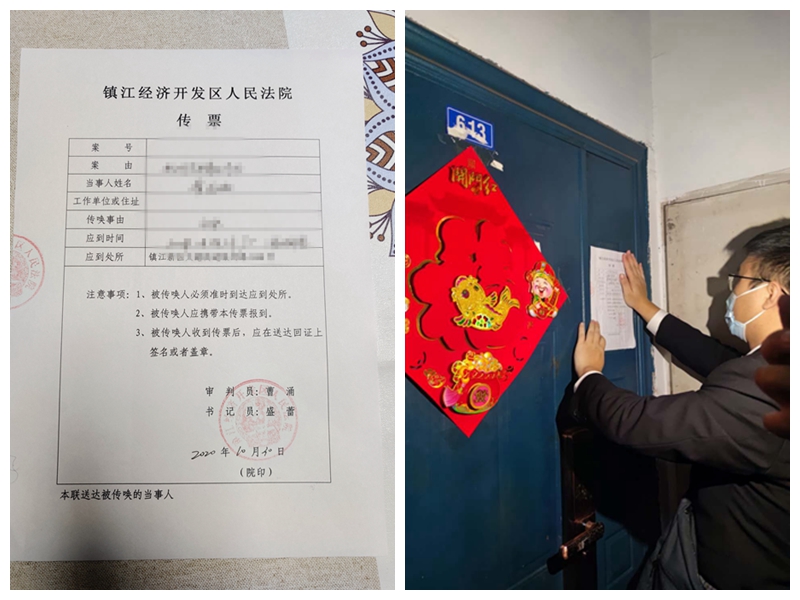 镇江经济开发区人民法院
传 票
案 号
案 由
当事人姓名
工作单位或住址
传唤事由
应到时间
应到处所
注意事项：1、被传唤人必须准时到达应到处所。
2、被传唤人应携带本传票报到。
3、被传唤人收到传票后，应在送达回证上
签名或者盖章。
审 判 员：曹 涌
书 记 员：盛 蕾
2020 年 10 月 10 日
（院印）
本联送达被传唤的当事人
613
开门红